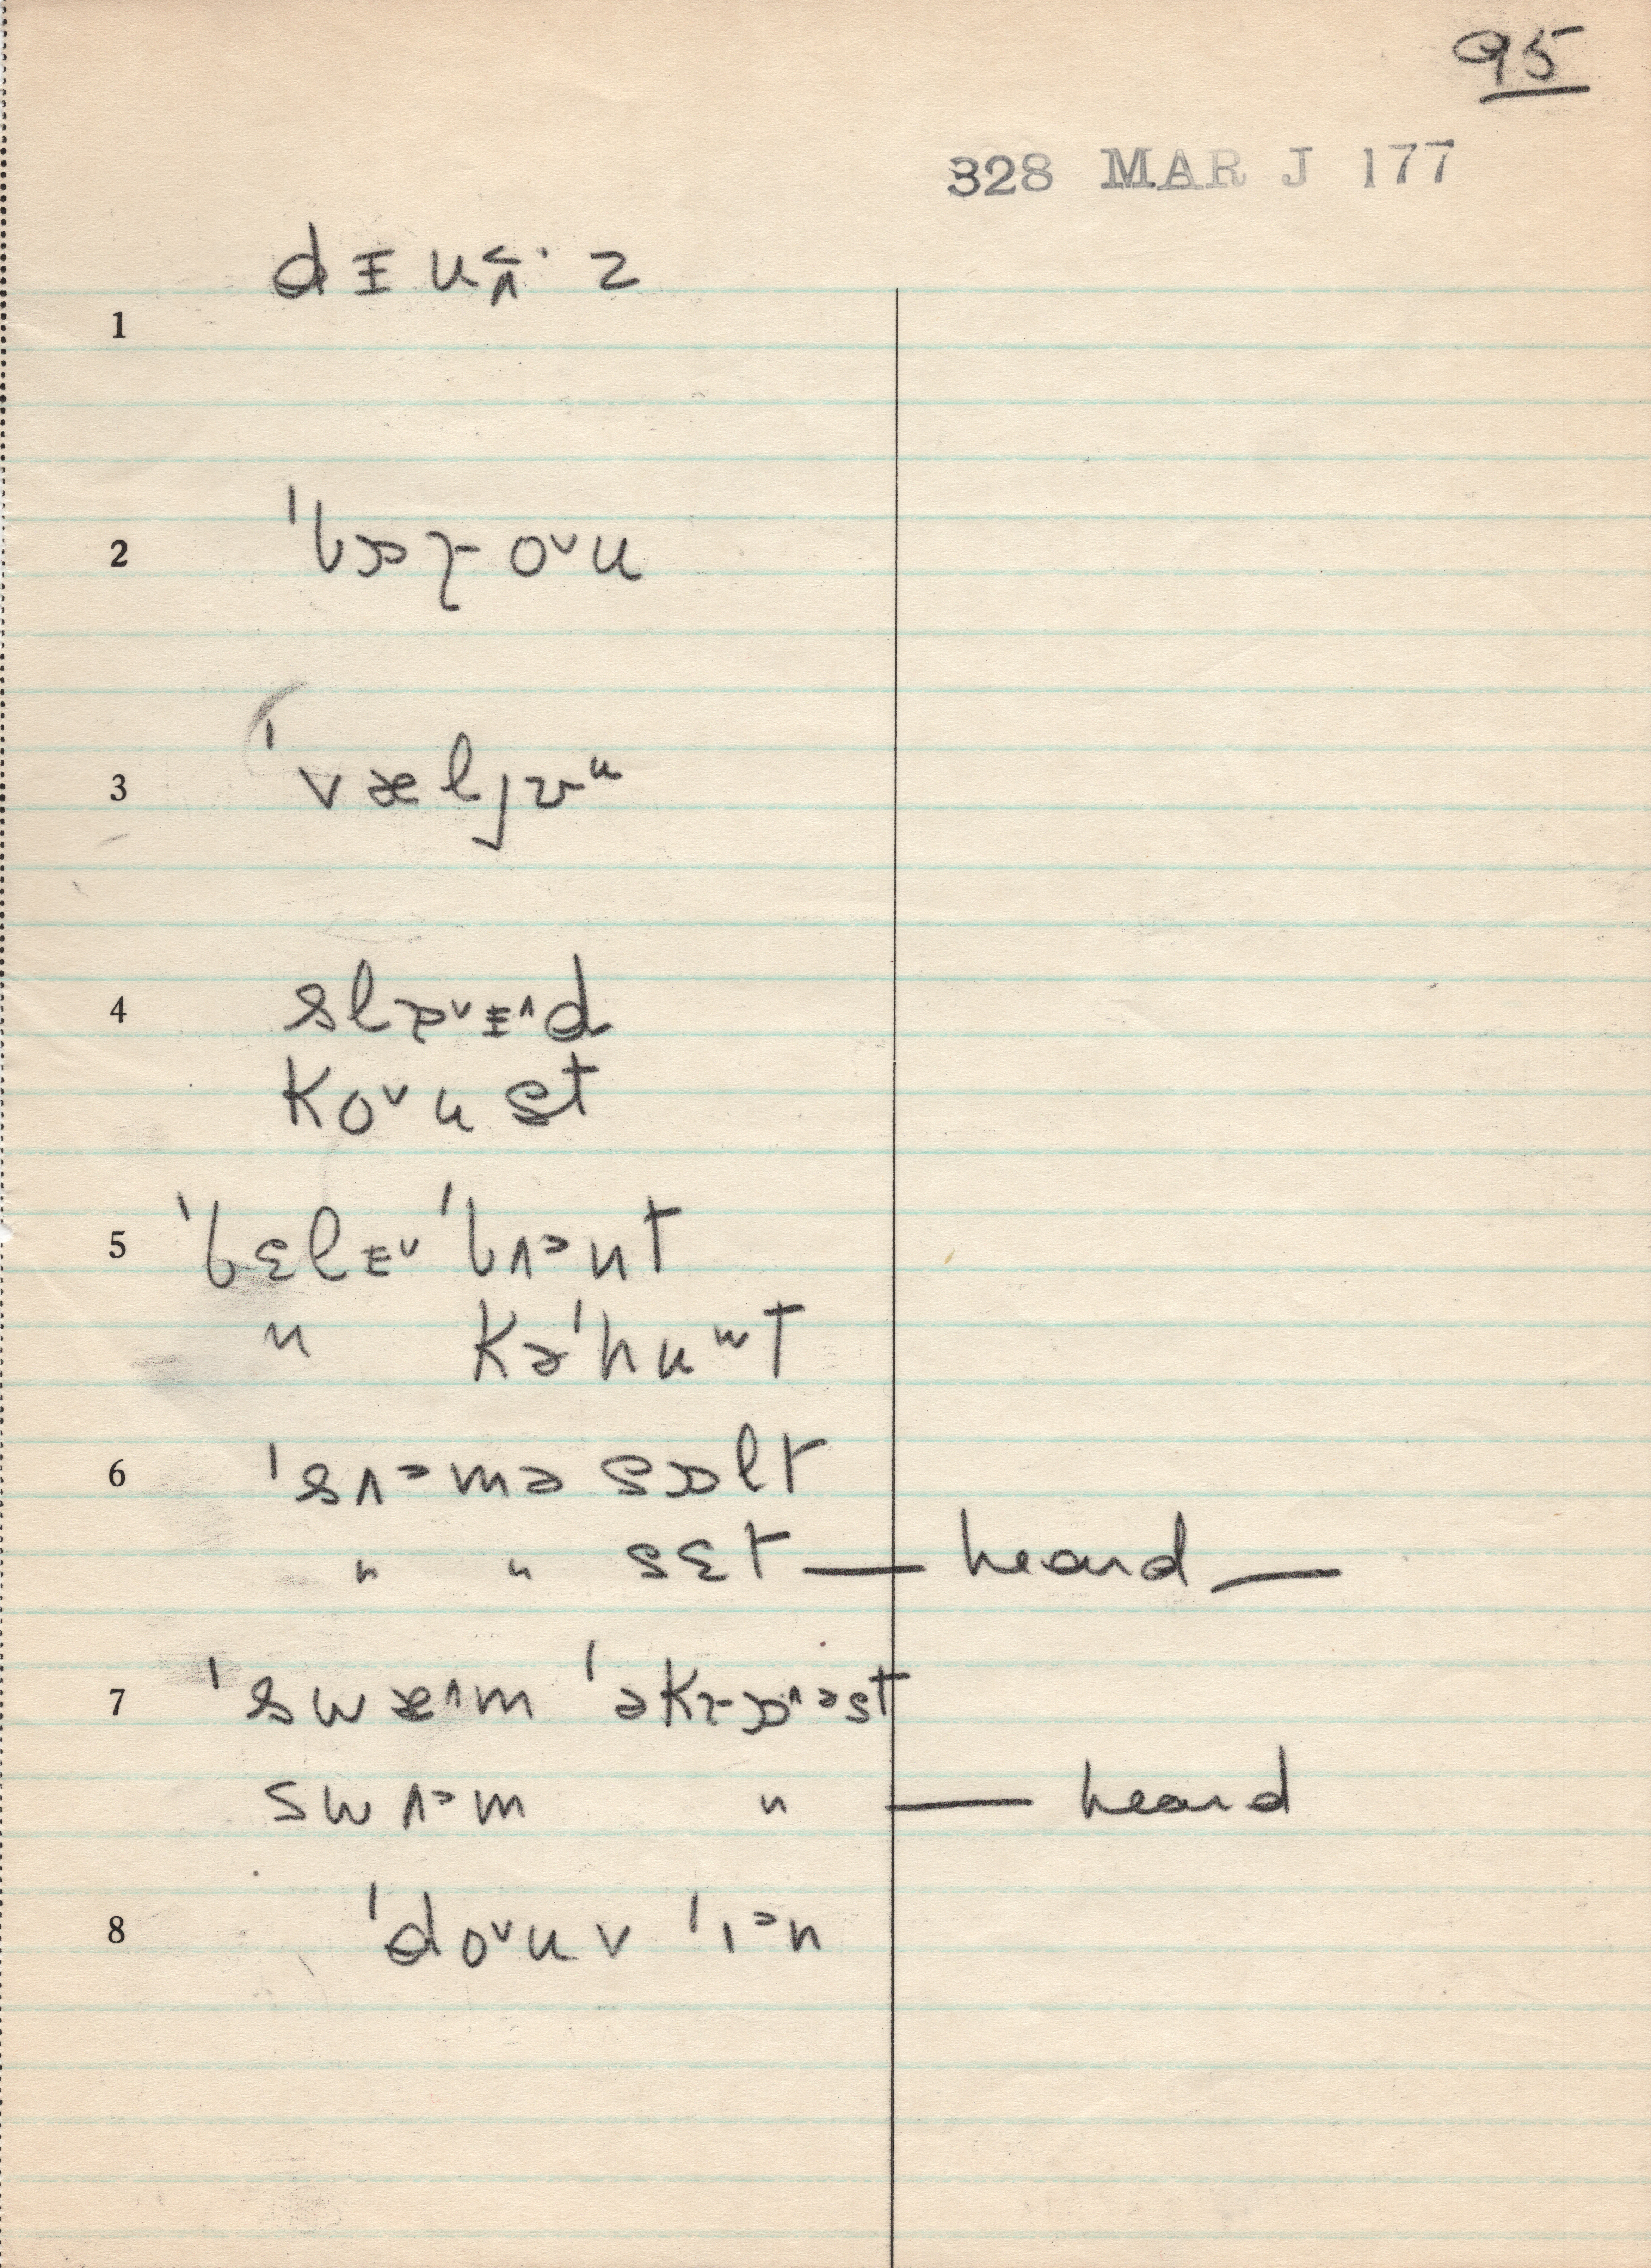 95
328 MAR J 177
1 dɪuʌ˂·z
2 ˈbɒɽo˅u
3 ˈvæljɚᵘ
4 slɒ˅ɪ˄d
ko˅ust
5 ˈbɛlɪ˅ ˈbʌᵊnt
" kəˈhuʷt
6 ˈsʌᵊmə sɒlt
" " sɛt — heard —
7 ˈswæ˄m ˈəkrɒ˄ᵊst
swʌᵊm " — heard
8 ˈdo˅uv ˈɪᵊn